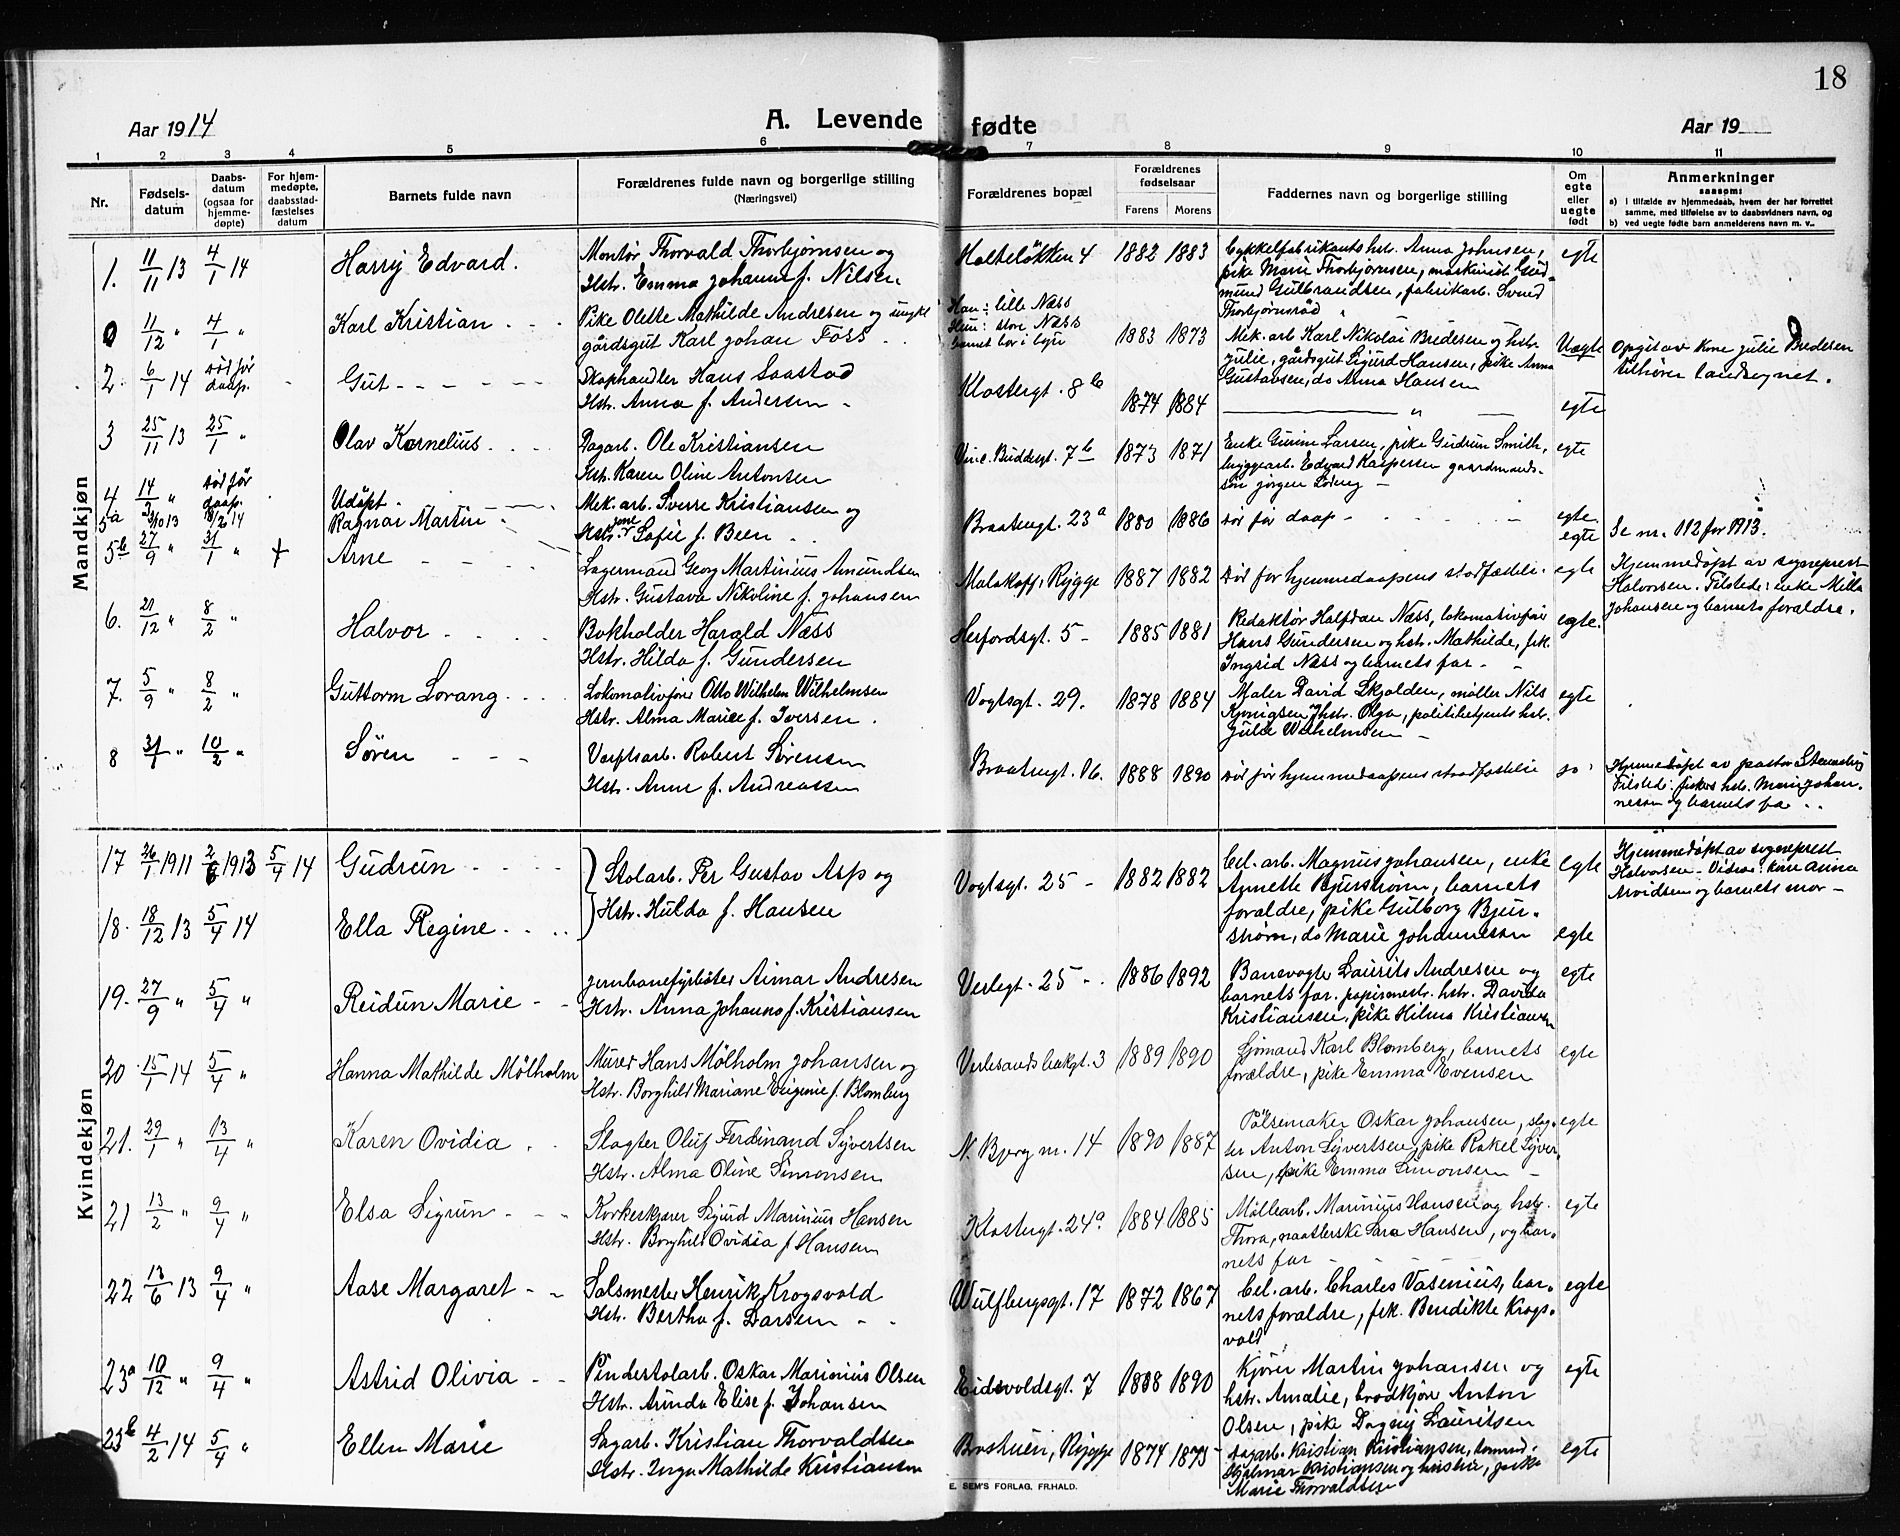 18
Aar 1914
A. Levende fødte
Aar 19
1 2 3 4 5 6 7 8 9 10 11
Nr.
Fødsels-
datum
Daabs-
datum
(ogsaa for
hjemme-
døpte)
For hjem-
medøpte,
daabsstad-
fæstelses
datum
Barnets fulde navn
Forældrenes fulde navn og borgerlige stilling
(Næringsvei)
Forældrenes bopæl
Forældrenes
fødselsaar
Farens Morens
Faddernes navn og borgerlige stilling
Om
egte
eller
uegte
født
Anmerkninger
saasom:
a) i tilfælde av hjemmedaab, hvem der har forrettet
samme, med tilføielse av to daabsvidners navn, og
b) ved uegte fødte barn anmelderens navn m. v..
Mandkjøn
1. 11/11 13 4/1 14 Harry Edvard.
Montør Thorvald Thorbjørnsen og
Hstr. Emma Johanne f. Nilsen
Holteløkken 4 1882 1883
Cykkelfabrikants hstr. Anna Johnsen,
pike Marie Thorbjørnsen, maskinist Gud-
mund Gulbrandsen, fabrikarb. Svend
Thorbjørnsrød
egte
0 11/12 " 4/1 " Karl Kristian
Pike Olette Mathilde Andresen og ungkl
gårdsgut Karl Johan Foss
Han: lille Næss
Hun: store Næss
barnet bor i byen
1883 1873
Mek. arb Karl Nikolai Bredesen og hstr.
Julie, gårdsgut Sigurd Hansen, pike Anna
Gustavsen, do Anna Hansen
Uegte
Opgit av kone Julie Bredesen
tilhører landsognet.
2. 6/1 14 død før
daap.
Gut
Skaphandler Hans Saastad
Hstr. Anna f. Andersen
Klostergt. 8b 1874 1884 " egte
3 25/11 13 25/1 " Olav Kornelius
Dagarb. Ole Kristiansen
Hstr. Karen Oline Antonsen
Vinc. Buddesgt. 7b 1873 1871
Enke Gurine Larsen, pike Gudrun Smith,
bryggearb. Edvard Kaspersen gaardmands-
søn Jørgen
egte
4 14/2 " død før
daap.
Udøpt
Mek. arb. Sverre Kristiansen og
Hstr. Sofie f. Been
Braatengt. 23a 1880 1886 død før daap egte
5a 3/10 13 18/2 14 Ragnar Martin egte
Se nr. 112 for 1913.
5b 27/9 " 31/1 " + Arne
Lagermand Georg Martinius Amundsen
Hstr. Gustava Nikoline f. Johansen
Malakoff, Rygge 1887 1882 død før hjemmedaapens stadfæstelse egte
Hjemmedøpt av sogneprest
Halvorsen. Tilstede: enke Milla
Johansen og barnets forældre.
6. 21/12 " 8/2 " Halvor
Bokholder Harald Næss
Hstr. Hilda f. Gundersen
Herfordsgt. 5 1885 1881
Redaktør Halfdan Næss, lokomotivfører
Hans Gundersen og hstr. Mathilde, frk.
Ingrid Næss og barnets far
egte.
7. 5/9 " 8/2 " Guttorm Lorang
Lokomotivfører Otto Wilhelm Wilhelmsen
Hstr. Alma Marie f. Iversen
Vogtsgt. 29. 1878 1884
Maler David Skjolden, møller Nils
Kjønigsen, hstr. Olga, politibetjents hstr.
Julie Wilhelmsen
egte
8 31/1 " 10/2 " Søren
Verftsarb. Robert Sørensen
Hstr. Anne f. Andreassen
Braatengt. 16. 1888 1890 død før hjemmedaapens stadfæstelse
Hjemmedøpt av pastor
Tilstede: fiskers hstr. Marie Johan-
nesen og barnets far
Kvindekjøn
17 26/1 1911 2/6 1913 5/4 14 Gudrun
Stolarb. Per Gustav Asp og
Hstr. Hulda f. Hansen
Vogtsgt. 25 1882 1882
Cel. arb. Magnus Johansen, enke
Annette Bjurstrøm, barnets
forældre, pike Gulborg Bjur-
strøm, do Marie Johannesen
egte
Hjemmedøpt av sogneprest
Halvorsen - Vidne: kone Anna
Arvidsen og barnets mor
18. 18/12 13 5/4 14 Ella Regine egte
19. 27/9 " 5/4 " Reidun Marie
Jernbanefyrbøter Aimar Andresen
Hstr. Anna Johanna f. Kristiansen
Verlegt. 25 1886 1892
Banevogter Laurits Andresen og
barnets far. papirmestr. hstr. Davida
Kristiansen, pike Hilma Kristiansen
egte
20 15/1 14 5/4 " Hanna Mathilde Mølholm
Murer Hans Mølholm Johansen og
Hstr. Borghild Mariane Eugenie f. Blomberg
Verlesands bakgt. 3 1889 1890
Sjømand Karl Blomberg, barnets
forældre, pike Emma Evensen
egte
21. 29/1 " 13/4 " Karen Ovidia
Slagter Oluf Ferdinand Syvertsen
Hstr. Alma Oline Simonsen
N. Bjerg m. 14 1890 1887
Pølsemaker Oskar Johansen, slag-
ter Anton Syvertsen, pike Rakel Syver-
sen, pike Emma Simonsen
egte
21 13/2 " 9/4 " Elsa Sigrun
Korkeskjærer Sigurd Marinius Hansen
Hstr. Borghild Ovidia f Hansen
Klostergt. 24a 1884 1885
Møllearb. Marinius Hansen og hstr.
Thora, naatlerske Sara Hansen, og bar-
nets far
egte
22 13/6 13 9/4 " Aase Margaret
Salsmester Henrik Krogsvold
Hstr. Bertha f. Larsen
Wulfbergsgt. 17 1872 1867
Cel. arb. Charles Vasenius, bar-
nets forældre, frk. Bendikte Krogs-
vold
egte
23a 10/12 " 9/4 " Astrid Olivia
Pindestolarb. Oskar Marinius Olsen
Hstr. Arinda Elise f. Johansen
Eidsvoldsgt. 7 1888 1890
Kjører Martin Johansen og
hstr. Amalie, brødkjører Anton
Olsen, pike Dagny Lauritsen
egte
23b 4/2 14 5/4 " Ellen Marie
Sagarb. Kristian Thorvaldsen
Hstr. Inga Mathilde Kristiansen
Rygge 1874 1875
Dagarb. Kristian Kristiansen, tømmerm.
Hjalmar Kristiansen og hustru, pike
Marie Thorvaldsen
egte
E. SEM'S FORLAG, FR.HALD.